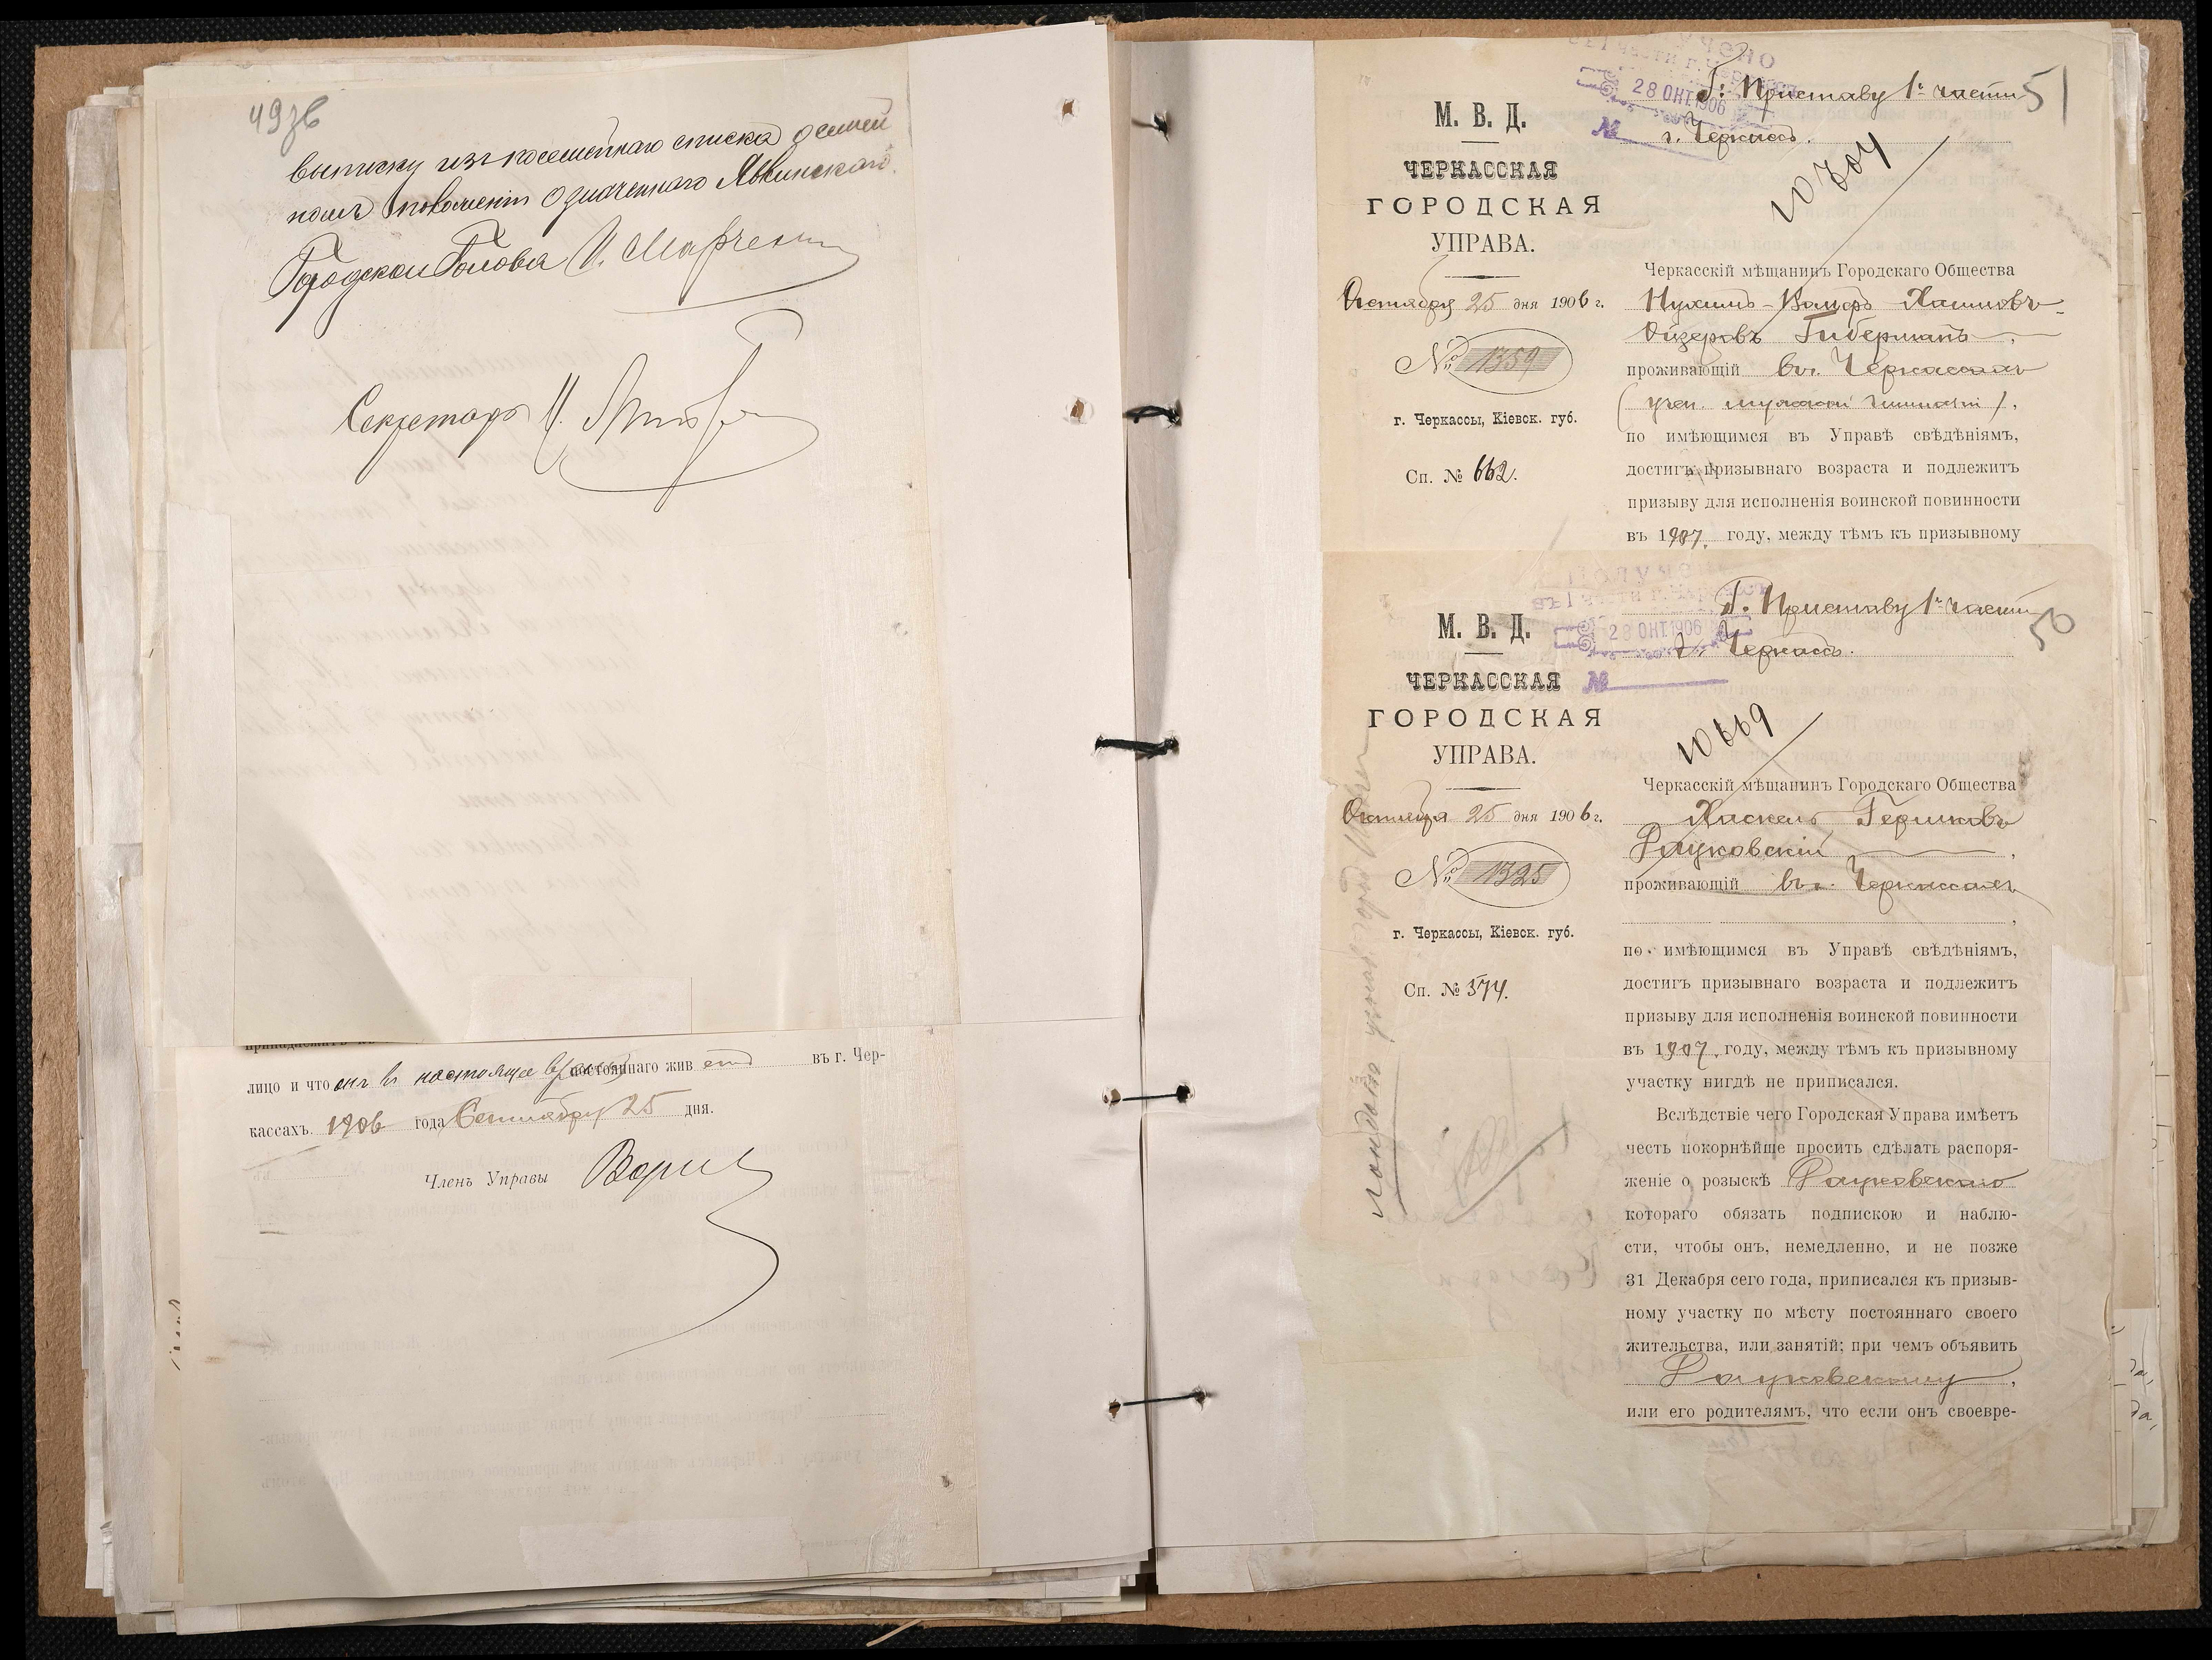 49зв
выписку изъ посемейнаго списка о семей
номъ положеніи означеннаго
Городской Голова И.
Секретарь
лицо и что онъ въ настоящее время постояннаго живетъ въ г. Чер-
кассахъ. 1906 года Сентября 25 дня.
Членъ Управы
51
28 ОКТ 1906
Г. Приставу 1й части
№
г. Черкассъ.
М. В. Д.
ЧЕРКАССКАЯ
ГОРОДСКАЯ
УПРАВА.
Октября 25 дня 1906 г.
№ 1359
г. Черкассы, Кіевск. губ.
Сп. № 662.
10704
Черкасскій мѣщанинъ Городскаго Общества
Нухимъ-Вольфъ Хаимовъ-
Ойзеровъ Гиберманъ,
проживающій въ г. Черкассахъ
(учен. мужской гимназіи),
по имѣющимся въ Управѣ свѣдѣніямъ,
достигъ призывнаго возраста и подлежитъ
призыву для исполненія воинской повинности
въ 1907 году, между тѣмъ къ призывному
50
28 ОКТ 1906
Г. Приставу 1й части
г. Черкассъ.
№
М. В. Д.
ЧЕРКАССКАЯ
ГОРОДСКАЯ
УПРАВА.
Октября 25 дня 1906 г.
№ 1325
г. Черкассы, Кіевск. губ.
Сп. № 574.
10669
Черкасскій мѣщанинъ Городскаго Общества
Хаскель Гершковъ
Рауковскій,
проживающій въ г. Черкассахъ,
по имѣющимся въ Управѣ свѣдѣніямъ,
достигъ призывнаго возраста и подлежитъ
призыву для исполненія воинской повинности
въ 1907 году, между тѣмъ къ призывному
участку нигдѣ не приписался.
Вслѣдствіе чего Городская Управа имѣетъ
честь покорнѣйше просить сдѣлать распоря-
женіе о розыскѣ Рауковскаго
котораго обязать подпискою и наблю-
сти, чтобы онъ, немедленно, и не позже
31 Декабря сего года, приписался къ призыв-
ному участку по мѣсту постояннаго своего
жительства, или занятій; при чемъ объявить
Рауковскому,
или его родителямъ, что если онъ своевре-